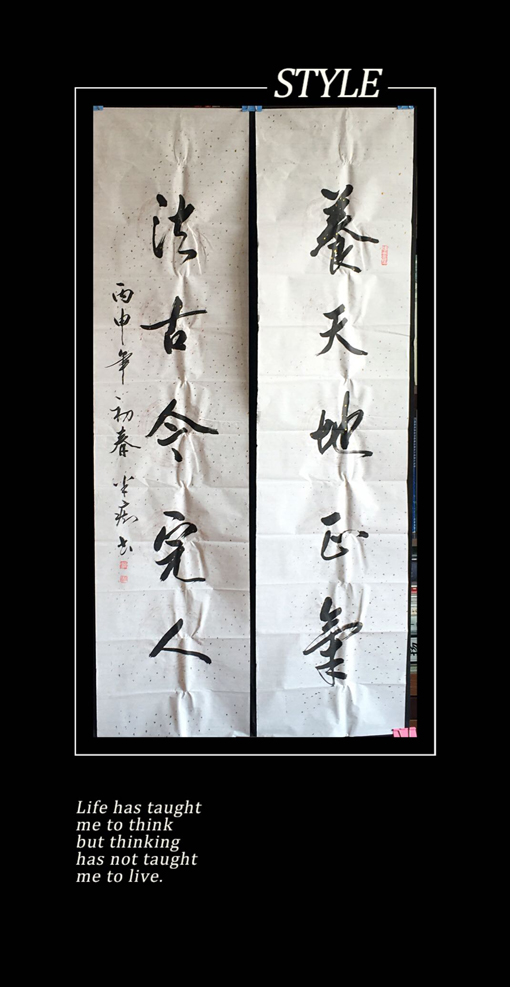 STYLE
養天地正氣
法古今完人
丙申年初春
书
Life has taught
me to think
but thinking
has not taught
me to live.